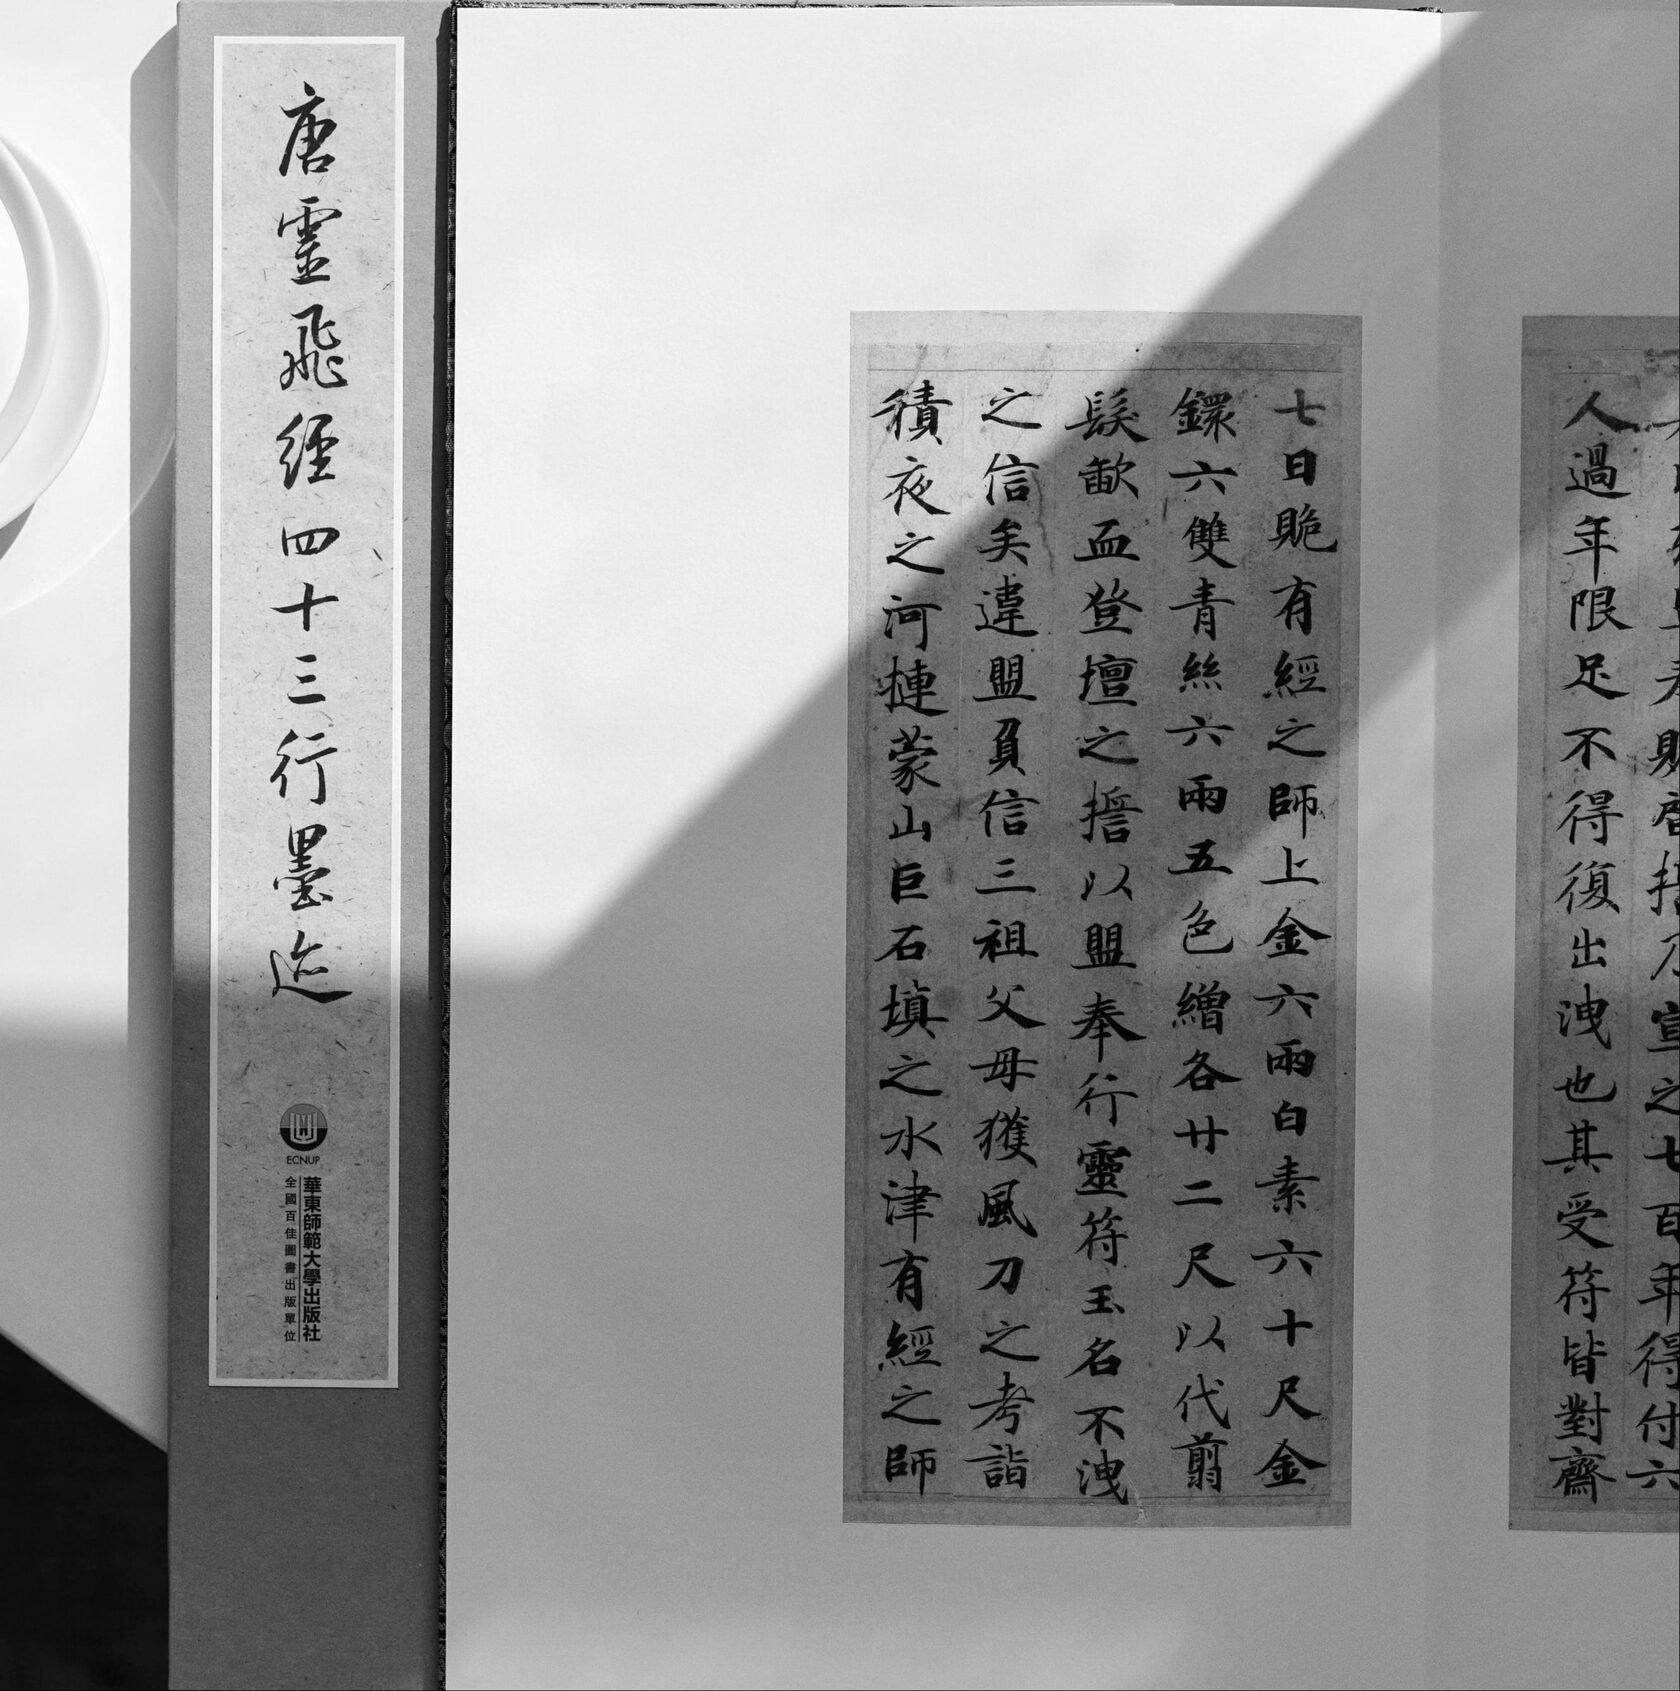 唐靈飛經四十三行墨迹
ECNUP
華東師範大學出版社
全國百佳圖書出版單位
之七百年得付六
人過年限足不得復出洩也其受符皆對齋
七日有經之師上金六兩白素六十尺金
鐶六雙青絲六兩五色繒各廿二尺以代翦
髮歃血登壇之誓以盟奉行靈符玉名不洩
之信矣違盟負信三祖父母獲風刀之考詣
積夜之河摙蒙山巨石填之水津有經之師